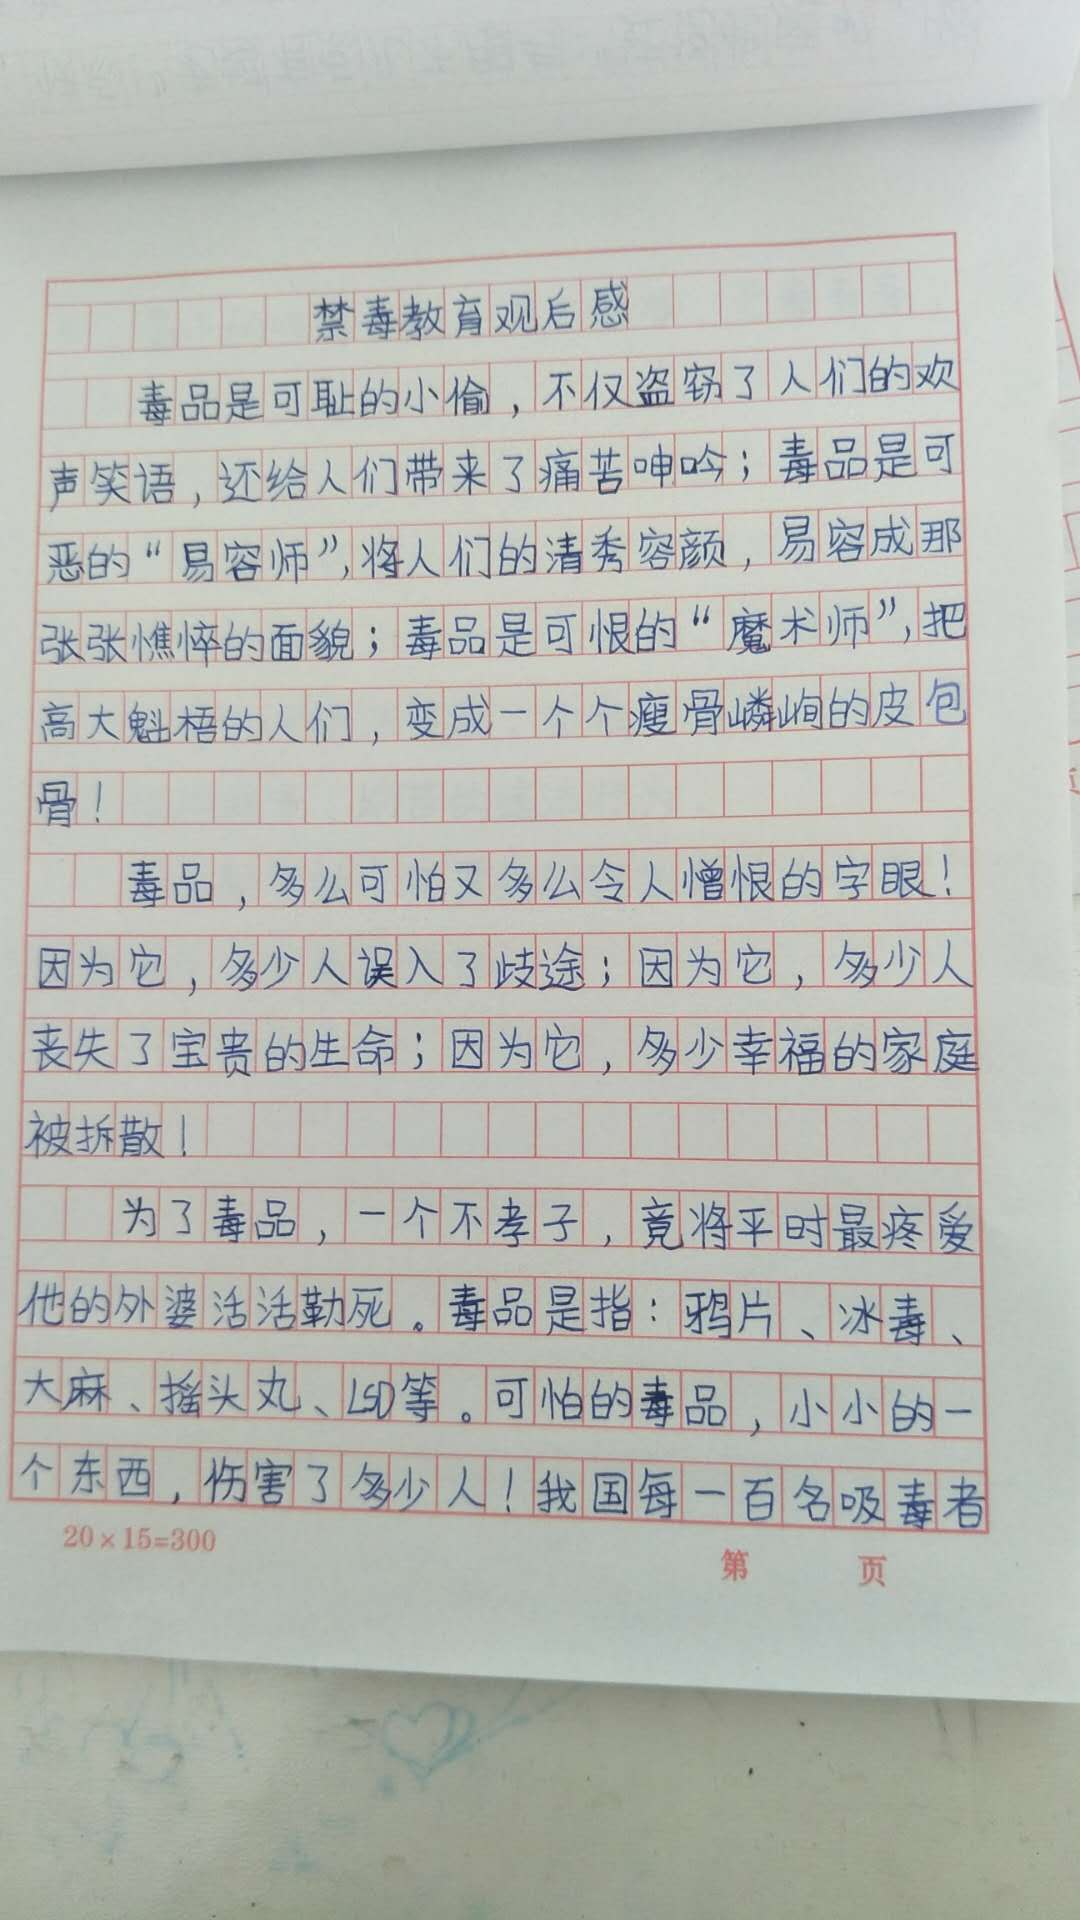 禁毒教育观后感
毒品是可耻的小偷，不仅盗窃了人们的欢
声笑语，还给人们带来了痛苦呻吟；毒品是可
恶的“易容师”，将人们的清秀容颜，易容成那
张张憔悴的面貌；毒品是可恨的“魔术师”，把
高大魁梧的人们，变成一个个瘦骨嶙峋的皮包
骨！
毒品，多么可怕又多么令人憎恨的字眼！
因为它，多少人误入了歧途；因为它，多少人
丧失了宝贵的生命；因为它，多少幸福的家庭
被拆散！
为了毒品，一个不孝子，竟将平时最疼爱
他的外婆活活勒死。毒品是指：鸦片、冰毒、
大麻、摇头丸、LSD等。可怕的毒品，小小的一
个东西，伤害了多少人！我国每一百名吸毒者
20×15=300
第 页